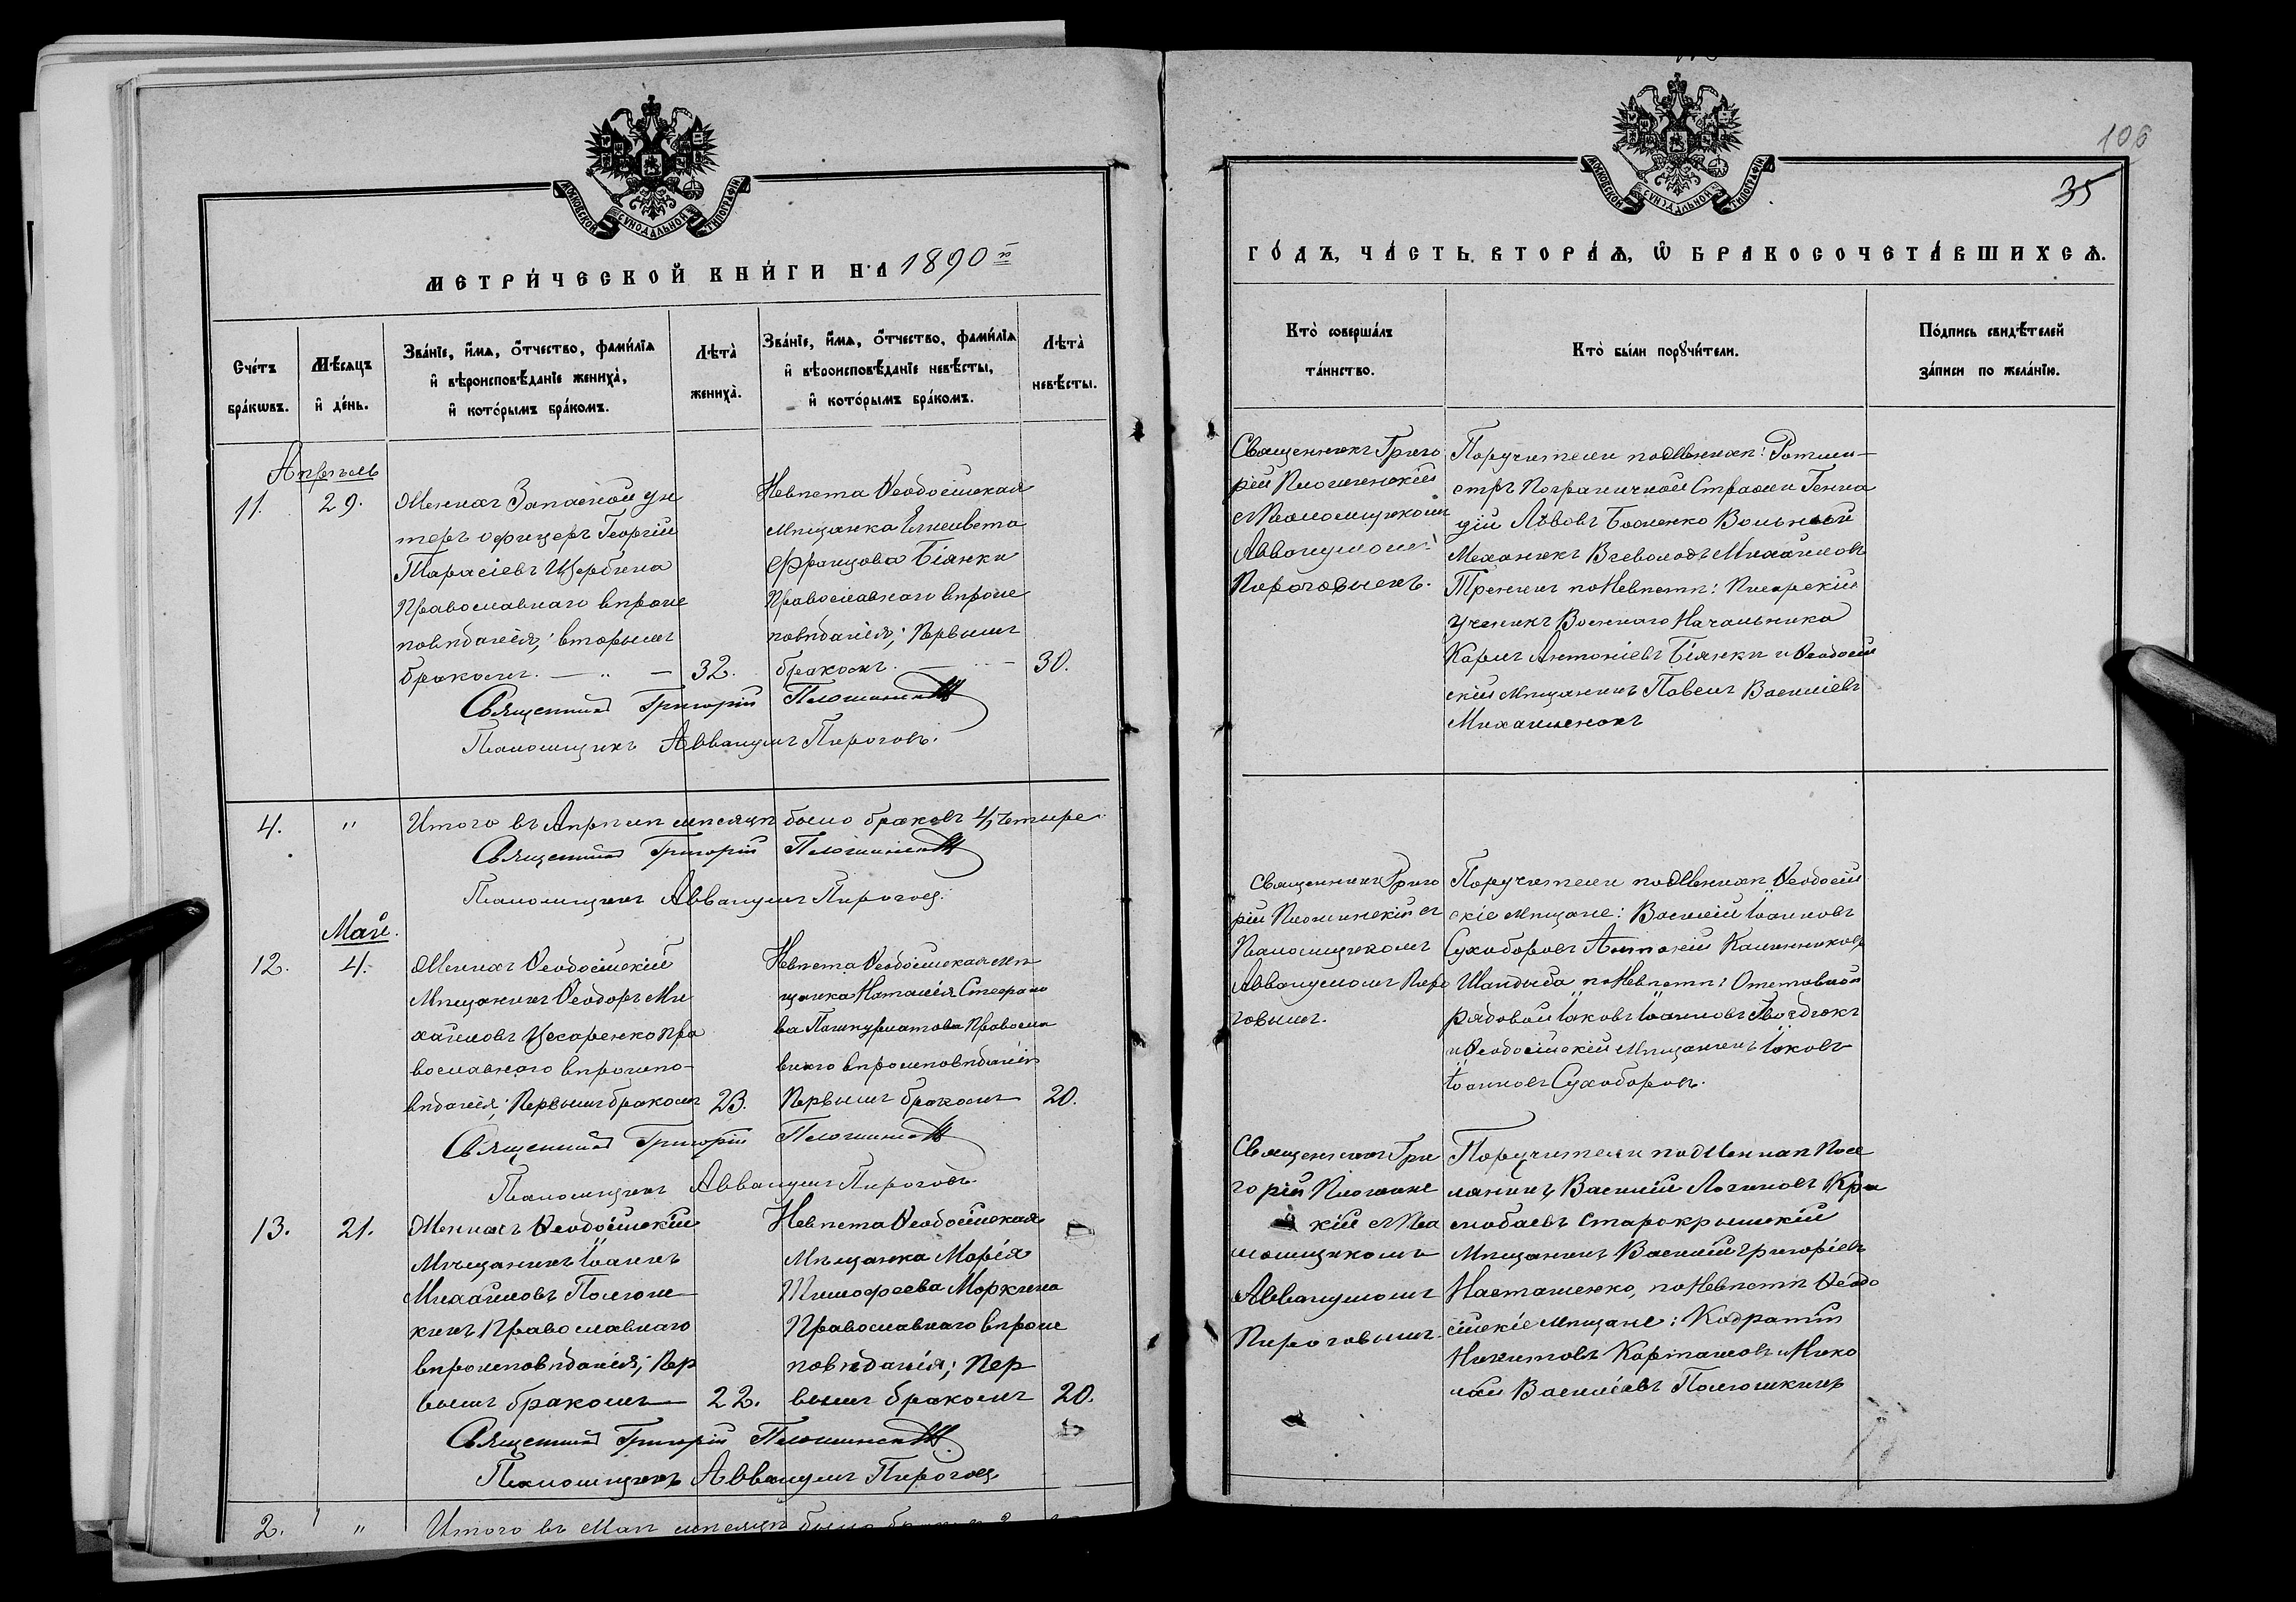 МОСКОВСКОЙ СѴНОДАЛЬНОЙ ТИПОГРАФІИ
МЕТРИ́ЧЕСКОЙ КНИ́ГИ НА 1890 й
Сче́тъ бра́кѡвъ.
Мѣ́сяцъ и де́нь.
Зва́нїе, и́мѧ, ѻ҆́тчество, фами́лїѧ
и҆ вѣроисповѣ́данїе жениха̀,
и҆ кото́рымъ бра́комъ.
Лѣта̀ жениха̀.
Зва́нїе, и́мѧ, ѻ҆́тчество, фами́лїѧ
и҆ вѣроисповѣ́данїе невѣ́сты,
и҆ кото́рымъ бра́комъ.
Лѣта̀ невѣ́сты.
Апрѣль
11. 29.
Женихъ Запасной ун
теръ офицеръ Георгій
Тарасіевъ Щербина
Православнаго вѣроис
повѣданія; вторымъ
бракомъ. — „ — 32.
Невѣста Ѳеодосійская
Мѣщанка Елисавета
Францова Біянки
Православнаго вѣроис
повѣданія; Первымъ
бракомъ. — 30.
Священникъ Григорій Плошинскій
Псаломщикъ Аввакумъ Пироговъ.
4. „ Итого въ Апрѣлѣ мѣсяцѣ было браковъ 4/Четыре.
Священникъ Григорій Плошинскій
Псаломщикъ Аввакумъ Пироговъ.
Май.
12. 4.
Женихъ Ѳеодосійскій
Мѣщанинъ Ѳеодоръ Ми
хайловъ Цехаренко Пра
вославнаго вѣроиспо-
вѣданія; Первымъ бракомъ 23.
Невѣста Ѳеодосійская мѣ
щанка Наталія Стефано
ва Православ
наго вѣроисповѣданія
Первымъ бракомъ 20.
Священникъ Григорій Плошинскій
Псаломщикъ Аввакумъ Пироговъ.
13. 21.
Женихъ Ѳеодосійскій
Мѣщанинъ Іоаннъ
Михайловъ Полюш-
кинъ Православнаго
вѣроисповѣданія; Пер
вымъ бракомъ — 22.
Невѣста Ѳеодосійская
Мѣщанка Марія
Тимофеева Моркина
Православнаго вѣроис
повѣданія; Пер
вымъ бракомъ 20.
Священникъ Григорій Плошинскій
Псаломщикъ Аввакумъ Пироговъ
2. „ Итого въ Маѣ мѣсяцѣ было
106
35
МОСКОВСКОЙ СѴНОДАЛЬНОЙ ТИПОГРАФІИ
ГО́ДЪ, ЧА́СТЬ ВТОРА́Ѧ, Ѽ БРАКОСОЧЕТА́ВШИХСѦ.
Кто̀ соверша́лъ та́инство.
Кто̀ бы́ли порꙋчи́тели.
По́дпись свидѣ́телей за́писи по жела́нїю.
Священникъ Григо
рій Плошинскій
съ Псаломщикомъ
Аввакумомъ
Пироговымъ.
Поручители по Женихѣ: Ротми-
стръ Пограничной Стражи Генна
дій Львовъ Боженко Вольный
Механикъ Всеволодъ Михайловъ
по Невѣстѣ: Писарскій
ученикъ Военнаго Начальника
Карлъ Антоніевъ Біянки и Ѳеодосій
скій Мѣщанинъ Павелъ Василіевъ
Михайленокъ
Священникъ Григо
рій Плошинскій съ
Псаломщикомъ
Аввакумомъ Пиро
говымъ.
Поручители по Женихѣ Ѳеодосій
скіе мѣщане: Василій Іоанновъ
Сухоборовъ Антоній Калинниковъ
Шандыба по Невѣстѣ: Отставной
рядовой Іаковъ Іоанновъ Гвоздюкъ
и Ѳеодосійскій Мѣщанинъ Іаковъ
Іоанновъ Сухоборовъ.
Священникъ Гри
горій Плошинс
кій съ Пса
ломщикомъ
Аввакумомъ
Пироговымъ
Поручители по Женихѣ Посе
лянинъ Василій Логиновъ
Старокрымскій
Мѣщанинъ Василій Григоріевъ
Насташенко, по Невѣстѣ Ѳеодо
сійскіе мѣщане: Кодратій
Никитовъ Карташовъ и Нико
лай Василіевъ Полюшкинъ